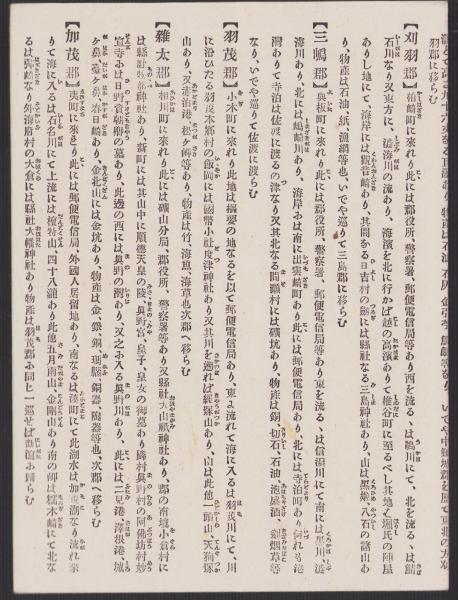 羽郡に移らむ
【刈羽郡】柏崎町に來れり此には郡役所、警察署、郵便電信局等あり西を流るゝは鵜川にて、北を流るゝは鯖
石川なり又東方に、澁海川の流あり、海濱を北に行かば越の高濱ありて椎谷町に至るべし其地に堀氏の陣屋
ありし地にて、海岸には觀音崎あり、其間なる日吉村の劔には縣社なる三島神社あり、山は黑姫、八石の諸山あ
り、物產は石油、紙、漁網等也、いでや巡りて三島郡に移らむ
【三嶋郡】與板町に來れり此には郡役所、警察署、郵便電信局等あり東を流るゝは信濃川にて南には黑川注
ぎ、海岸あり、北には嶋崎川あり、海岸みは南に出雲崎町あり此には郵便電信局あり、北には寺泊町あり何れも港
灣ありて寺泊は佐渡に渡るの津なり又其北なる間瀨村には礦坑あり、物產は銅、切石、石油、泡盛酒、煙草等
なり、いでや巡りて佐渡に渡らむ
【羽茂郡】小木町に來れり此地は樞要の地なるを以て郵便電信局あり、東み流れて海に入るは羽茂川にて、川
に沿ひたる羽茂本鄉村の飯岡には國幣小社度津神社あり又其川を遡れば經塚山あり、白は此他一頭山、天狗塚
山あり、又赤泊港、松ヶ崎等あり、物產は竹、海魚、海草也次郡へ移らむ
【雜太郡】相川町に來れり此には礦山分局、郡役所、警察署等あり又縣社大山祇神社あり、郡の南境小倉村に
は縣社物部神社あり、新町には其山中に順德天皇の陵、眞野宮、皇子、皇女の御墓あり隣村眞野の阿佛坊村妙
宣寺みは日野資朝卿の墓あり、此邊の西には眞野の灣あり、又之ふ入る眞野川あり、此には二見港、澤根港、城
ヶ鼻、臺ヶ鼻、春日崎あり、金北山には金坑あり、物產は金、銀、銅、琺瑯、銅器、陶器等也、次郡へ移らむ
【加茂郡】夷町に來をり此には郵便電信局、外國人居留地あり、南なるは湊町にて此湖水は加茂湖なり流れ來
りて海に入るは石名川にて上流には檀特山、四十八瀧あり此他五月雨山、金剛山あり南の岬は姬木崎にて北な
るは彈崎なり外海府村の大倉には縣社大幡神社あり物產は羽茂郡ふ同じ一巡せば旅館ふ歸らむ